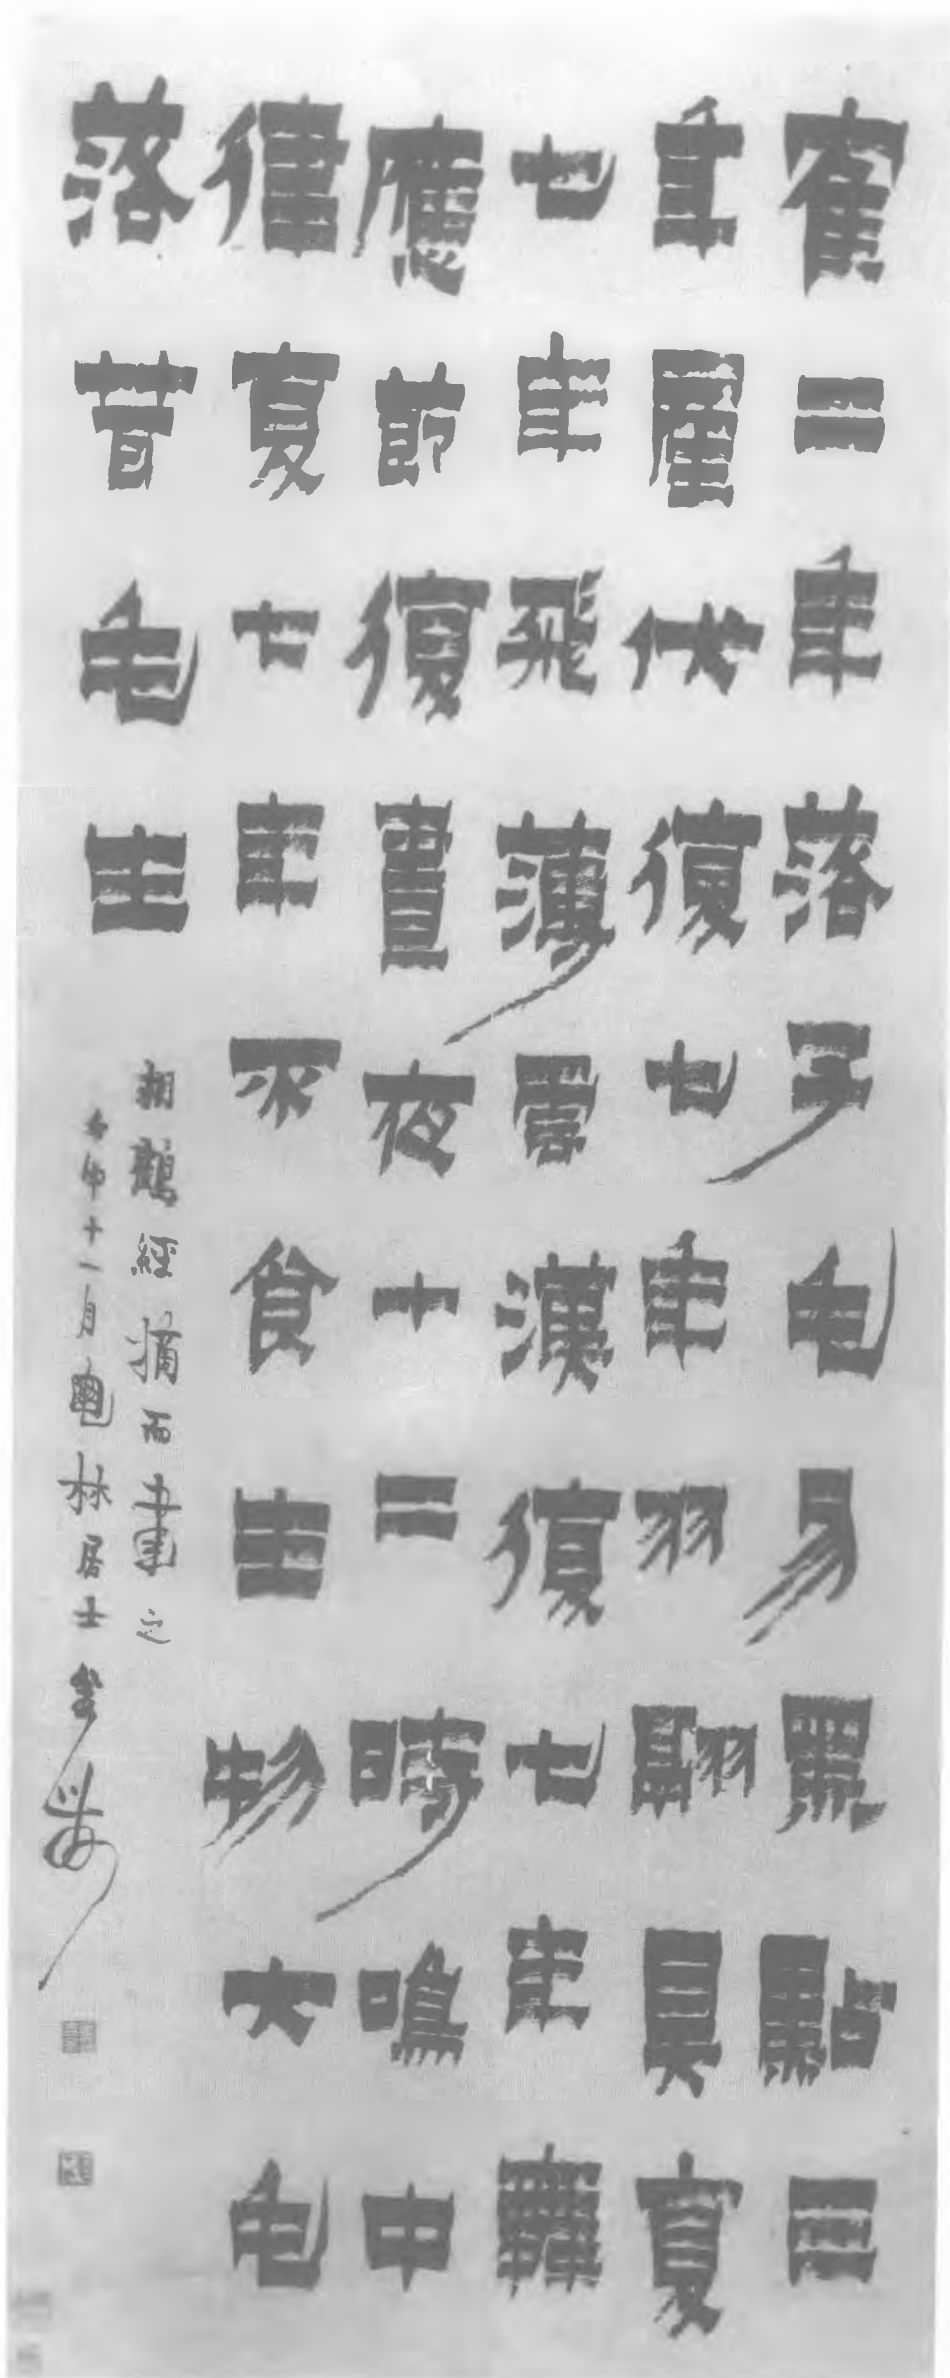 隺二年落子毛易黑點三
年產伏復七年羽翮具复
七年飛薄雲漢復七年舞
應節復晝夜十二時鳴中
律复七年不食生物大毛
落茸毛生
相鶴經摘而書之
申十一月龜林居士金農